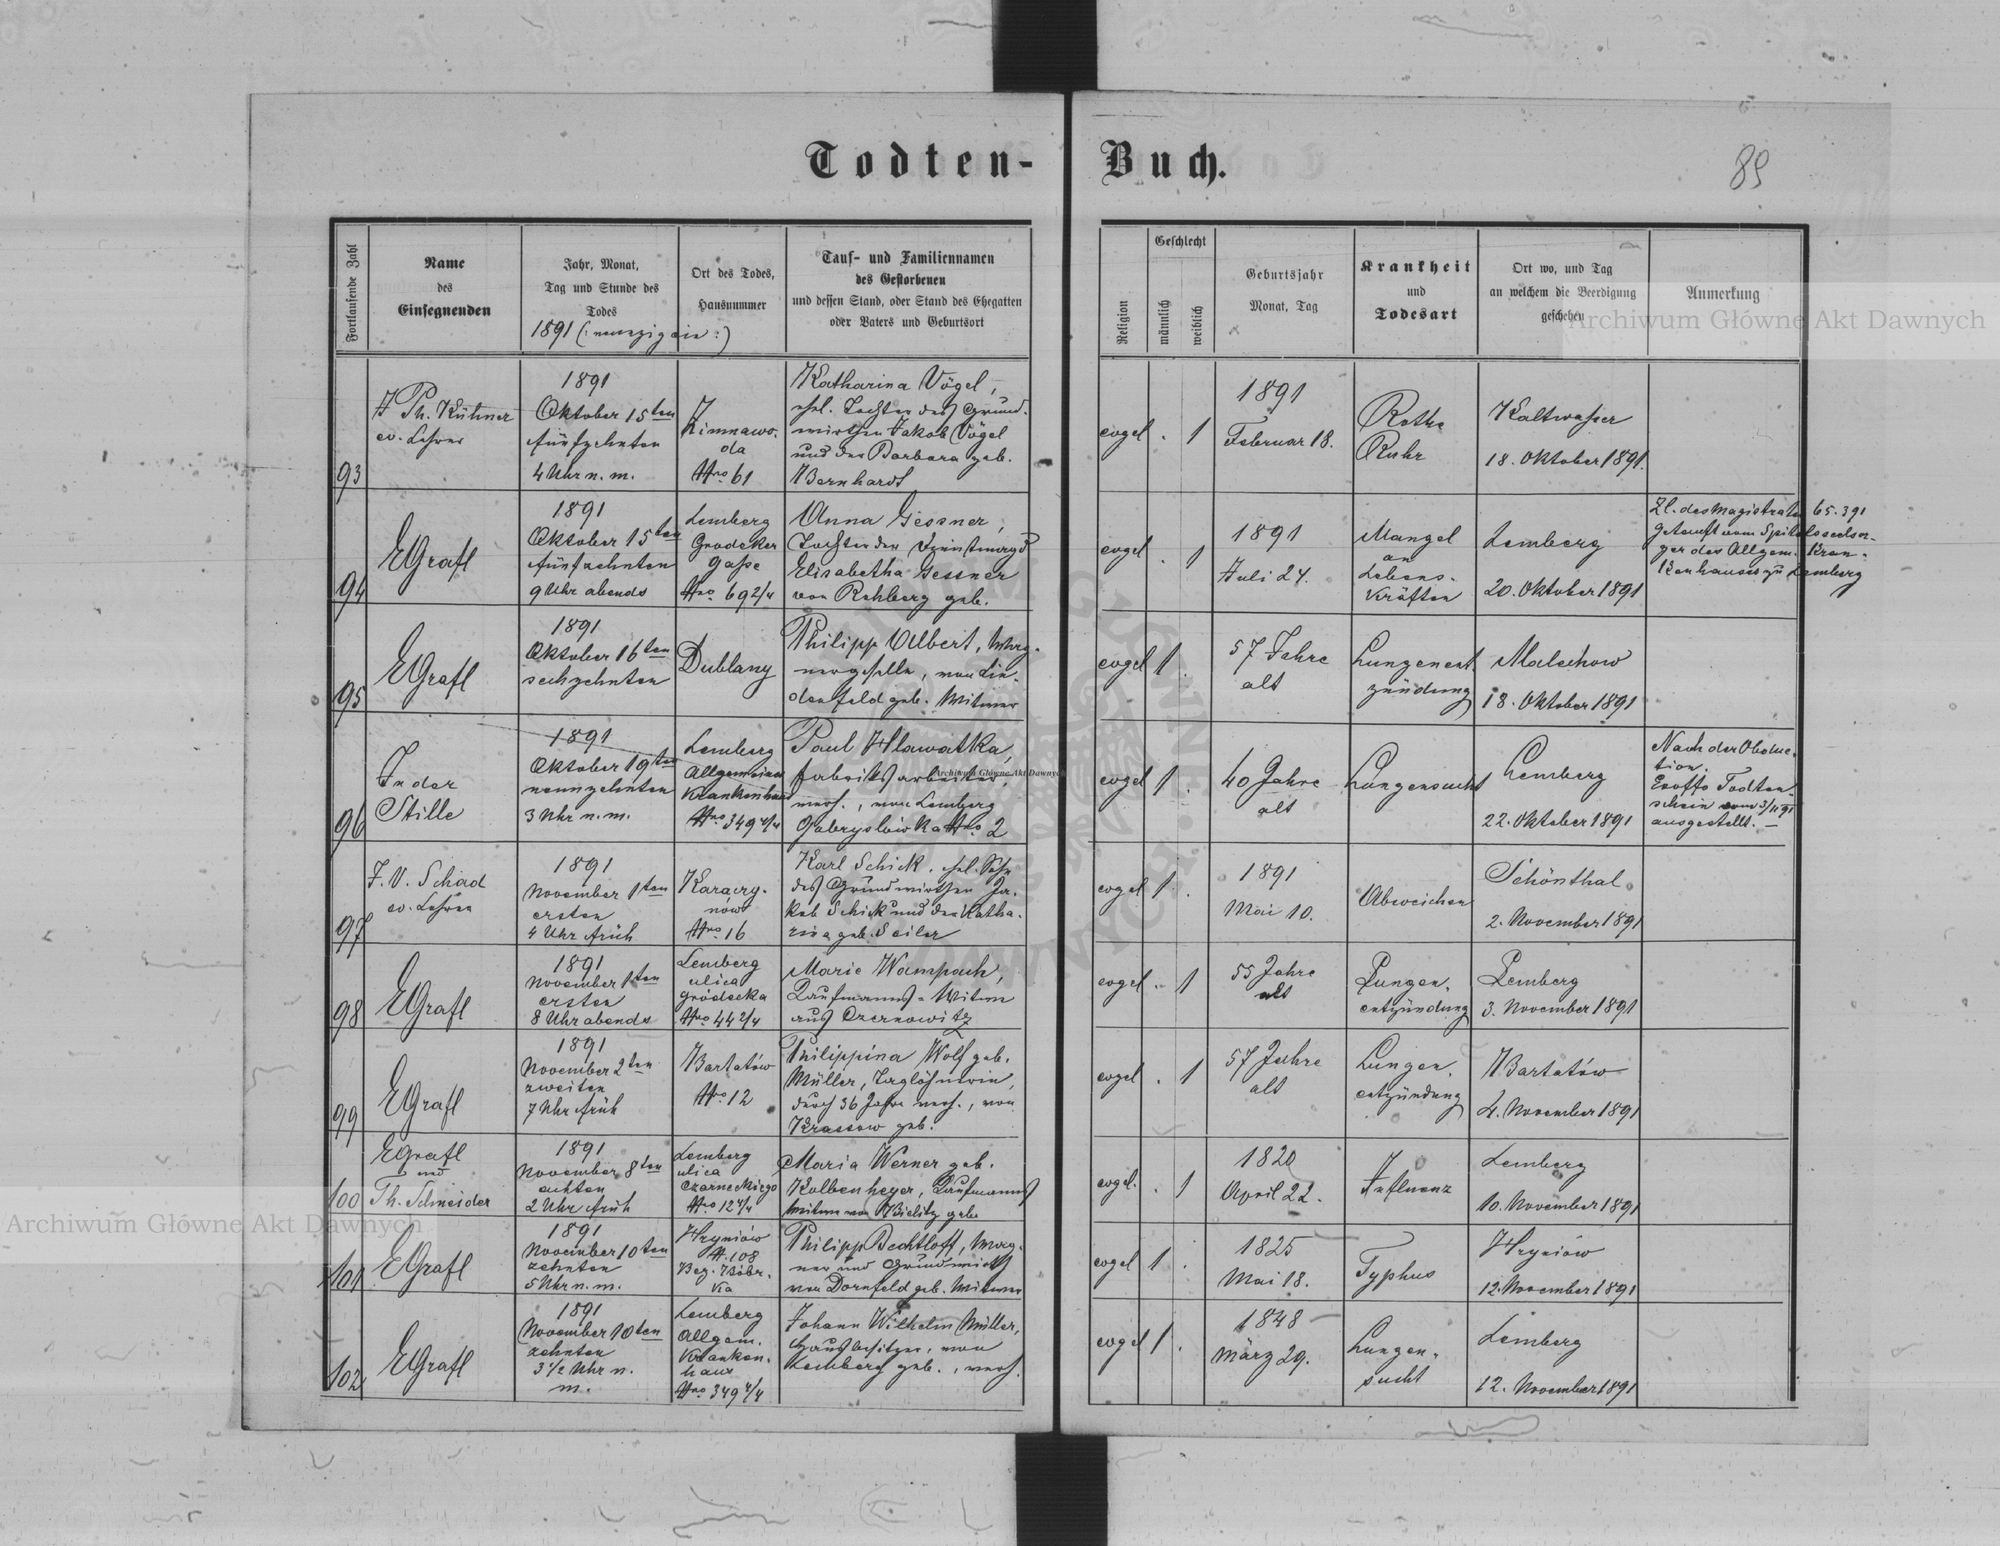 Todten-Buch.
89
Fortlaufende Zahl
Name
des
Einsegnenden
Jahr, Monat,
Tag und Stunde des
Todes
1891 (: neunzig ein :)
Ort des Todes,
Hausnummer
Tauf- und Familiennamen
des Gestorbenen
und dessen Stand, oder Stand des Ehegatten
oder Vaters und Geburtsort
Religion
Geschlecht
männlich
weiblich
Geburtsjahr
Monat, Tag
Krankheit
und
Todesart
Ort wo, und Tag
an welchem die Beerdigung
geschehen
Anmerkung
93
Ph. Kühner
ev. Lehrer
1891
Oktober 15ten
fünfzehnten
4 Uhr n. m.
Zimnawo-
da
Nro 61
Katharina Vögel,
ehel. Tochter des Grund-
wirthen Jakob Vögel
und der Barbara geb.
Bernhardt
evgel
. 1
1891
Februar 18.
Rothe
Ruhr
Kaltwasser
18. Oktober 1891.
94
EGrafl
1891
Oktober 15ten
fünfzehnten
9 Uhr abends
Lemberg
Grodeker
gasse
Nro 69 2/4
Anna Gessner,
Tochter der Dienstmagd
Elisabetha Gessner
von Rehberg geb.
evgel
. 1
1891
Juli 24.
Mangel
an
Lebens-
kräften
Lemberg
20. Oktober 1891
Zl. des Magistrates 65.391
getauft vom Spitalsseelsor-
ger des Allgem. Kran-
kenhauses zu Lemberg
95
EGrafl
1891
Oktober 16ten
sechzehnten
Dublany
Philipp Albert, Wag-
nergeselle, von Lin-
denfeld geb. Witwer
evgel
1 .
57 Jahre
alt
Lungenent-
zündung
Malechow
18. Oktober 1891
96
In der
Stille
1891
Oktober 19ten
neunzehnten
3 Uhr n. m.
Lemberg
Allgemeines
Krankenhaus
Nro 349 4/4
Paul Hlawatka,
Fabriksarbeiter,
verh., von Lemberg
Gabryslówka Nro 2
evgel
1 .
40 Jahre
alt
Lungensucht
Lemberg
22. Oktober 1891
Nach der Obduc-
tion.
Exoffo Todten-
schein vom 3/11 91
ausgestellt. —
97
J. V. Schad
ev. Lehrer
1891
November 1ten
ersten
4 Uhr früh
Karaczy-
nów
Nro 16
Karl Schick, ehel. Sohn
des Grundwirthen Ja-
kob Schick und der Katha-
rina geb. Seiler
evgel
1 .
1891
Mai 10.
Abweichen
Schönthal
2. November 1891
98
EGrafl
1891
November 1ten
ersten
8 Uhr abends
Lemberg
ulica
gródecka
Nro 44 2/4
Marie Wampach,
Kaufmanns-Witwe
aus Czernowitz
evgel
. 1
55 Jahre
alt
Lungen-
entzündung
Lemberg
3. November 1891
99
EGrafl
1891
November 2ten
zweiten
7 Uhr früh
Bartatów
Nro 12
Philippina Wolf geb.
Müller, Taglöhnerin,
durch 36 Jahre verh., von
Krassow geb.
evgel
. 1
57 Jahre
alt
Lungen-
entzündung
Bartatów
4. November 1891
100
EGrafl
und
Th. Schneider
1891
November 8ten
achten
2 Uhr früh
Lemberg
ulica
Czarneckiego
Nro 12 4/4
Maria Werner geb.
Kolbenheyer, Kaufmanns
Witwe von Bielitz geb.
evgel.
. 1
1820
April 22.
Influenz
Lemberg
10. November 1891
101
EGrafl
1891
November 10ten
zehnten
5 Uhr n. m.
Hryniów
N. 108
Bez. Bóbr-
ka
Philipp Bechtloff, Wag-
ner und Grundwirth
von Dornfeld geb. Witwer
evgel
1 .
1825
Mai 18.
Typhus
Hryniów
12. November 1891
102
EGrafl
1891
November 10ten
zehnten
3 1/2 Uhr n.
m.
Lemberg
Allgem.
Kranken-
haus
Nro 349 4/4
Johann Wilhelm Müller,
Hausbesitzer, von
Lemberg geb., verh.
evgel
1 .
1848
März 29.
Lungen-
sucht
Lemberg
12. November 1891
Archiwum Główne Akt Dawnych
Archiwum Główne Akt Dawnych
Archiwum Główne Akt Dawnych